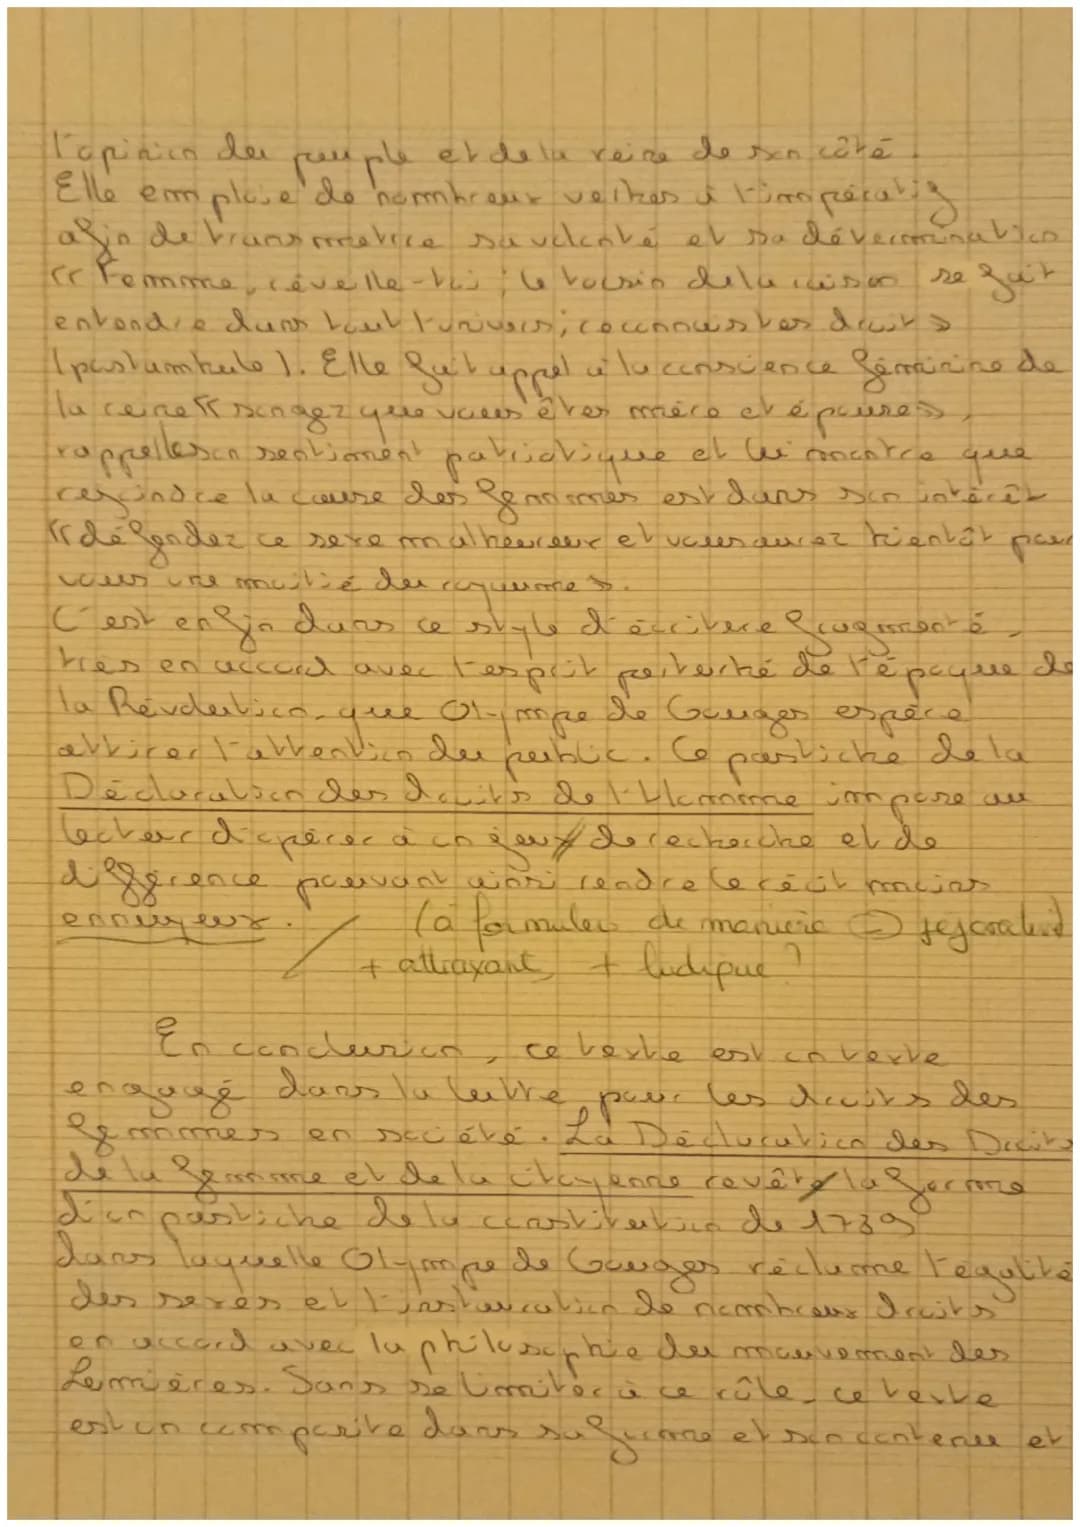 l'opinion du peuple et de la reine de son côté.
Elle emploie de nombreux verbes à l'impératif
afin de transmettre sa volonté et sa détermination
« Femme, réveille-toi ; le tocsin de la raison se fait
entendre dans tout l'univers ; reconnais tes droits »
(postambule). Elle fait appel à la conscience féminine de
la reine « songez que vous êtes mère et épouse »,
rappelle son sentiment patriotique et lui montre que
rejoindre la cause des femmes est dans son intérêt
« défendez ce sexe malheureux et vous aurez bientôt pour
vous une moitié du royaume ».
C'est enfin dans ce style d'écriture fragmenté,
très en accord avec l'esprit perturbé de l'époque de
la Révolution, que Olympe de Gouges espère
attirer l'attention du public. Ce pastiche de la
Déclaration des droits de l'Homme impose au
lecteur d'opérer à un jeux de recherche et de
différence pouvant ainsi rendre le récit moins
ennuyeux. (à formuler de manière ⊖ péjorative
+ attrayant, + ludique ?
En conclusion, ce texte est un texte
engagé dans la lutte pour les droits des
femmes en société. La Déclaration des Droits
de la femme et de la citoyenne revête la forme
d'un pastiche de la constitution de 1789
dans laquelle Olympe de Gouges réclame l'égalité
des sexes et l'instauration de nombreux droits
en accord avec la philosophie du mouvement des
Lumières. Sans se limiter à ce rôle, ce texte
est un composite dans sa forme et son contenu et